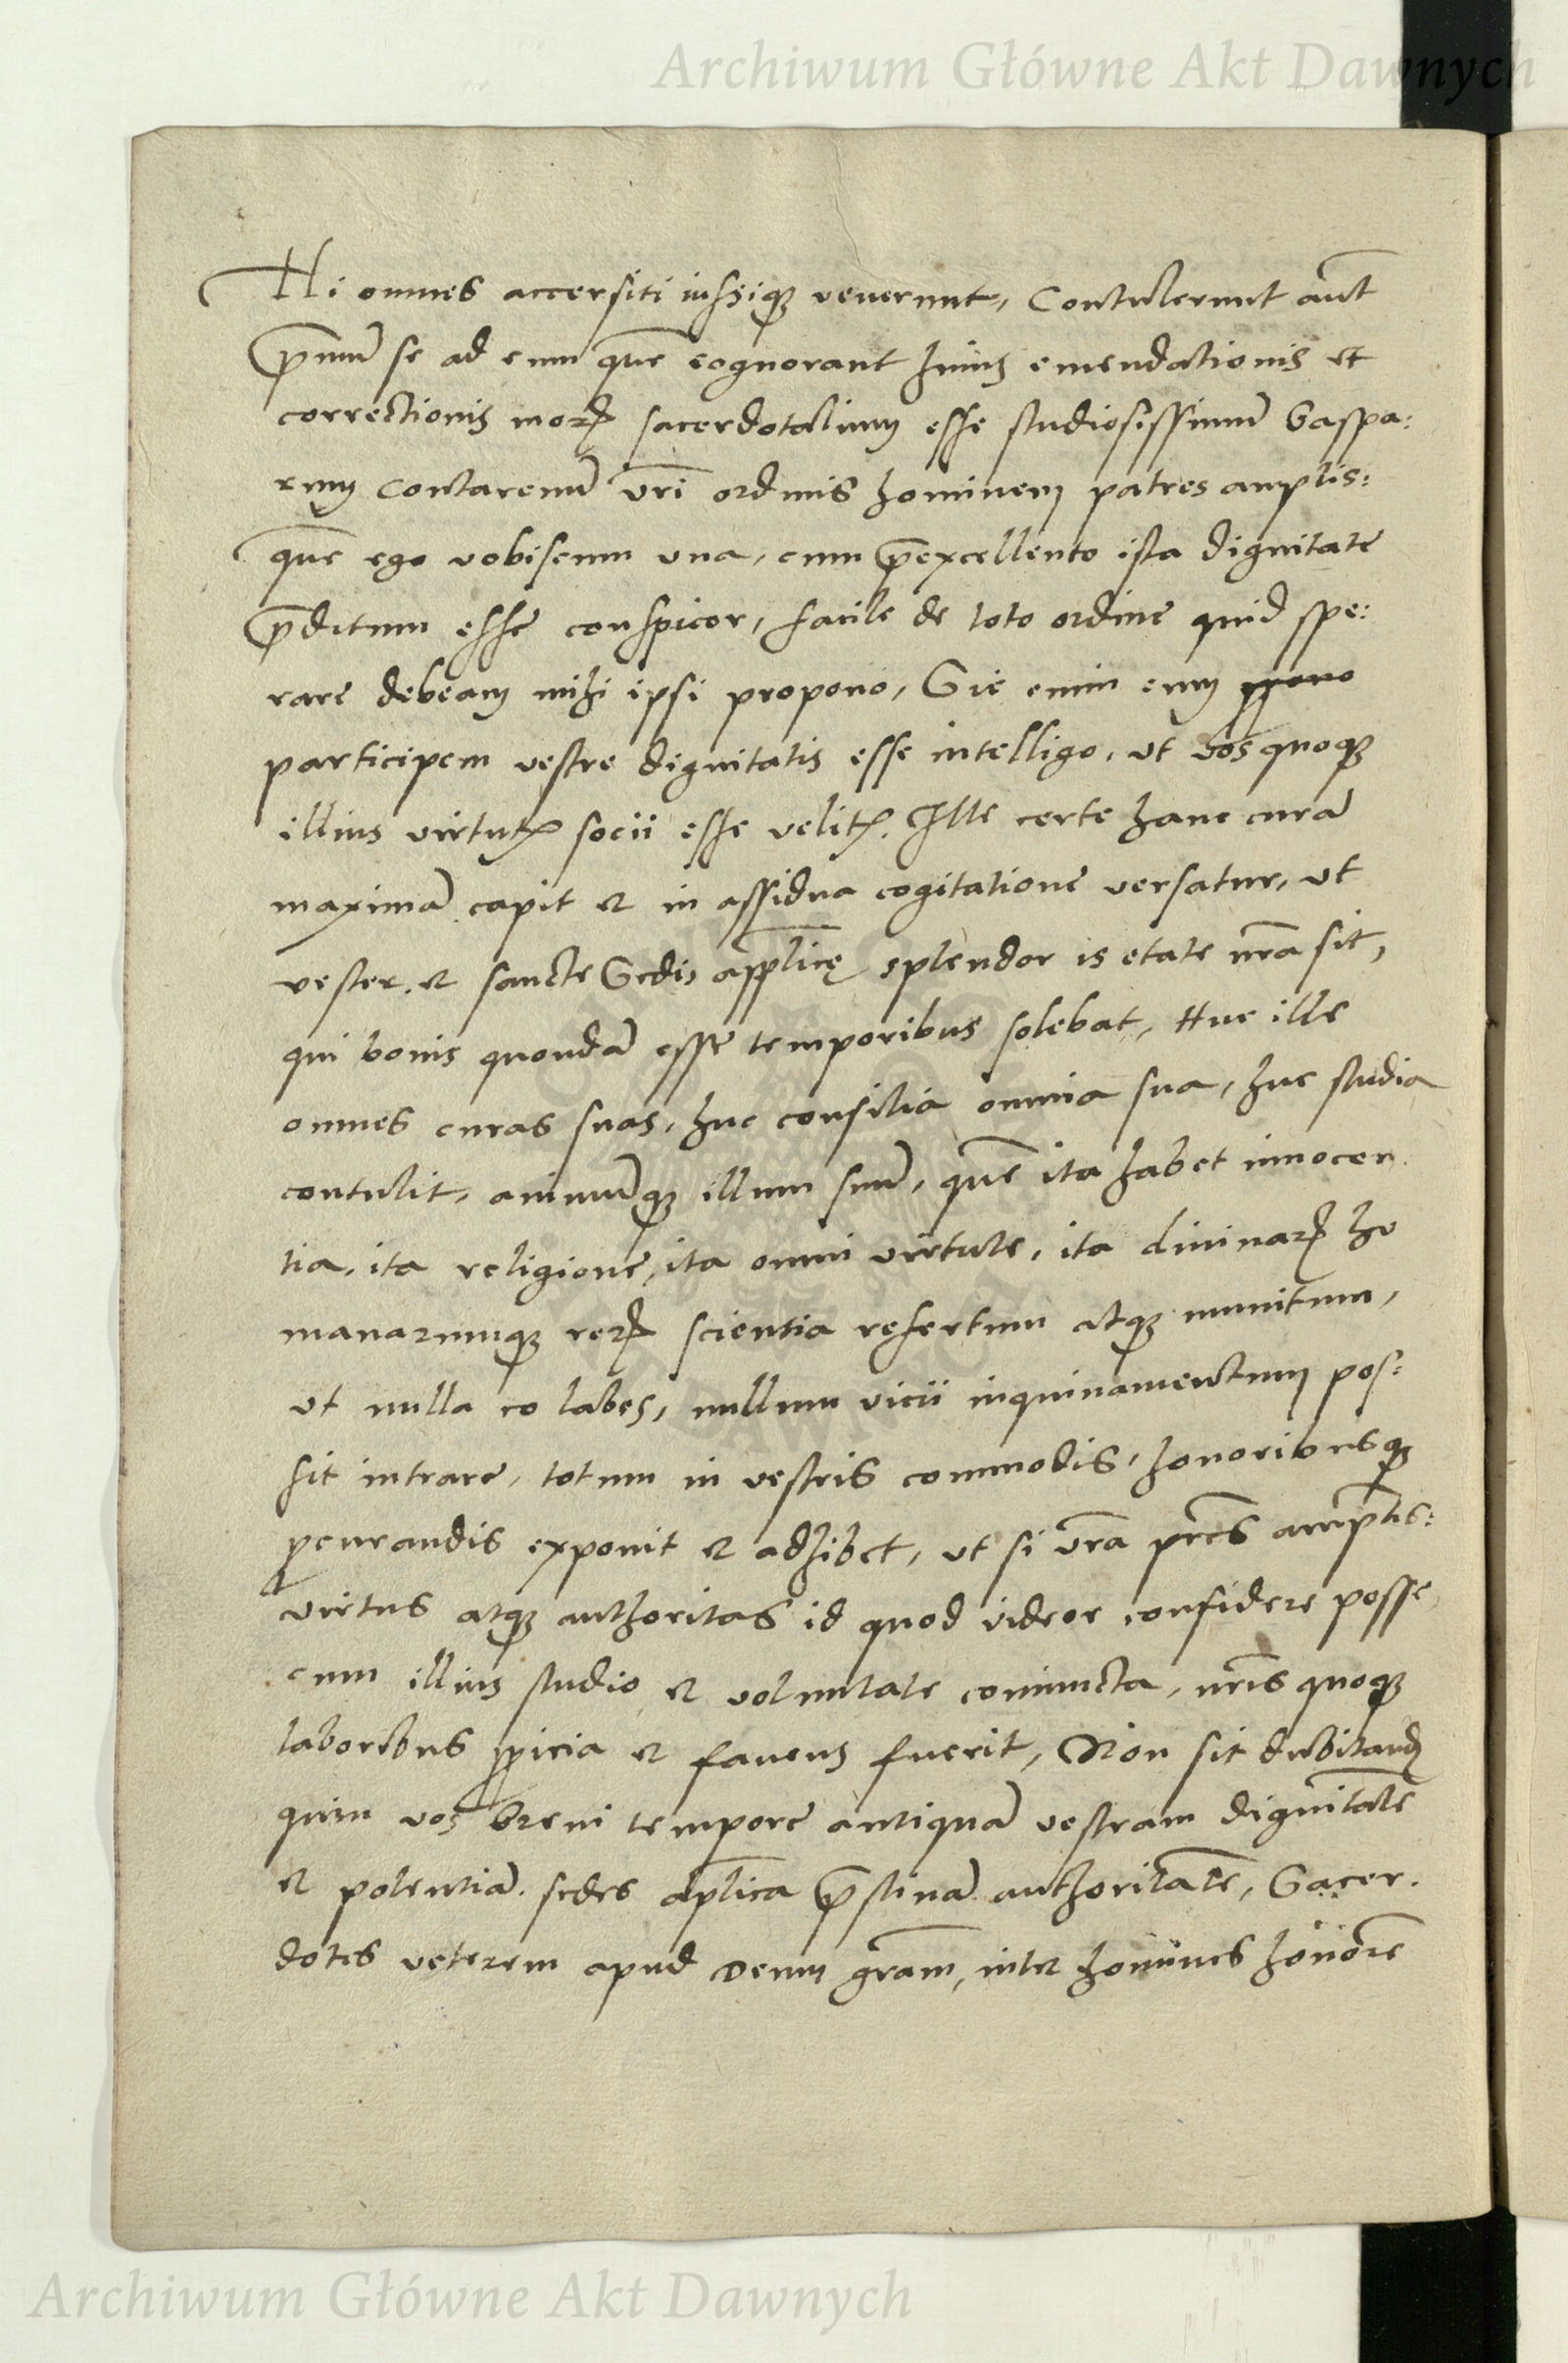 Archiwum Główne Akt Dawnych
Hi omnes accersiti iussiq; venerunt, Contulerunt aūt
p̄mū se ad eum quē cognorant huius emendationis et
correctionis moꝝ sacerdotalium esse studiosissimū Gaspa:
rum Contarenū vr̄i ordinis hominem patres amplis:
quē ego vobiscum una, cum p̄excellento ista dignitate
p̄ditum esse conspicor, facile de toto ordine quid spe:
rare debeam mihi ipsi propono, Sic enim eum ꝓpono
participem vestre dignitatis esse intelligo, ut vos quoq;
illius virtutꝭ socii esse velitꝭ. Ille certe hanc curā
maximā capit et in assidua cogitatione versatur, ut
vester. et sancte Sedis applicę splendor is etate nr̄a sit,
qui bonis quondā esse temporibus solebat, Huc ille
omnes curas suas, huc consilia omnia sua, huc studia
contulit, animūq; illum suū, quē ita habet innocen
tia, ita religione, ita omni virtute, ita divinaꝝ hu
manarumq; reꝝ scientia refertum atq; munitum,
ut nulla eo labes, nullum vicii inquinamentum pos:
sit intrare, totum in vestris commodis, honoribusq;
ꝓcurandis exponit et adhibet, ut si vr̄a pr̄es amplis:
virtus atq; authoritas id quod videor confidere posse
cum illius studio et voluntate coniuncta, nr̄is quoq;
laboribus ꝓpicia et favens fuerit, Non sit dubitand
quin vos brevi tempore antiquā vestram dignitatē
et potentiā. sedes ap̄lica p̄stinā authoritatē, Sacer.
dotes veterem apud Deum grām, inter homines honorē
Archiwum Główne Akt Dawnych